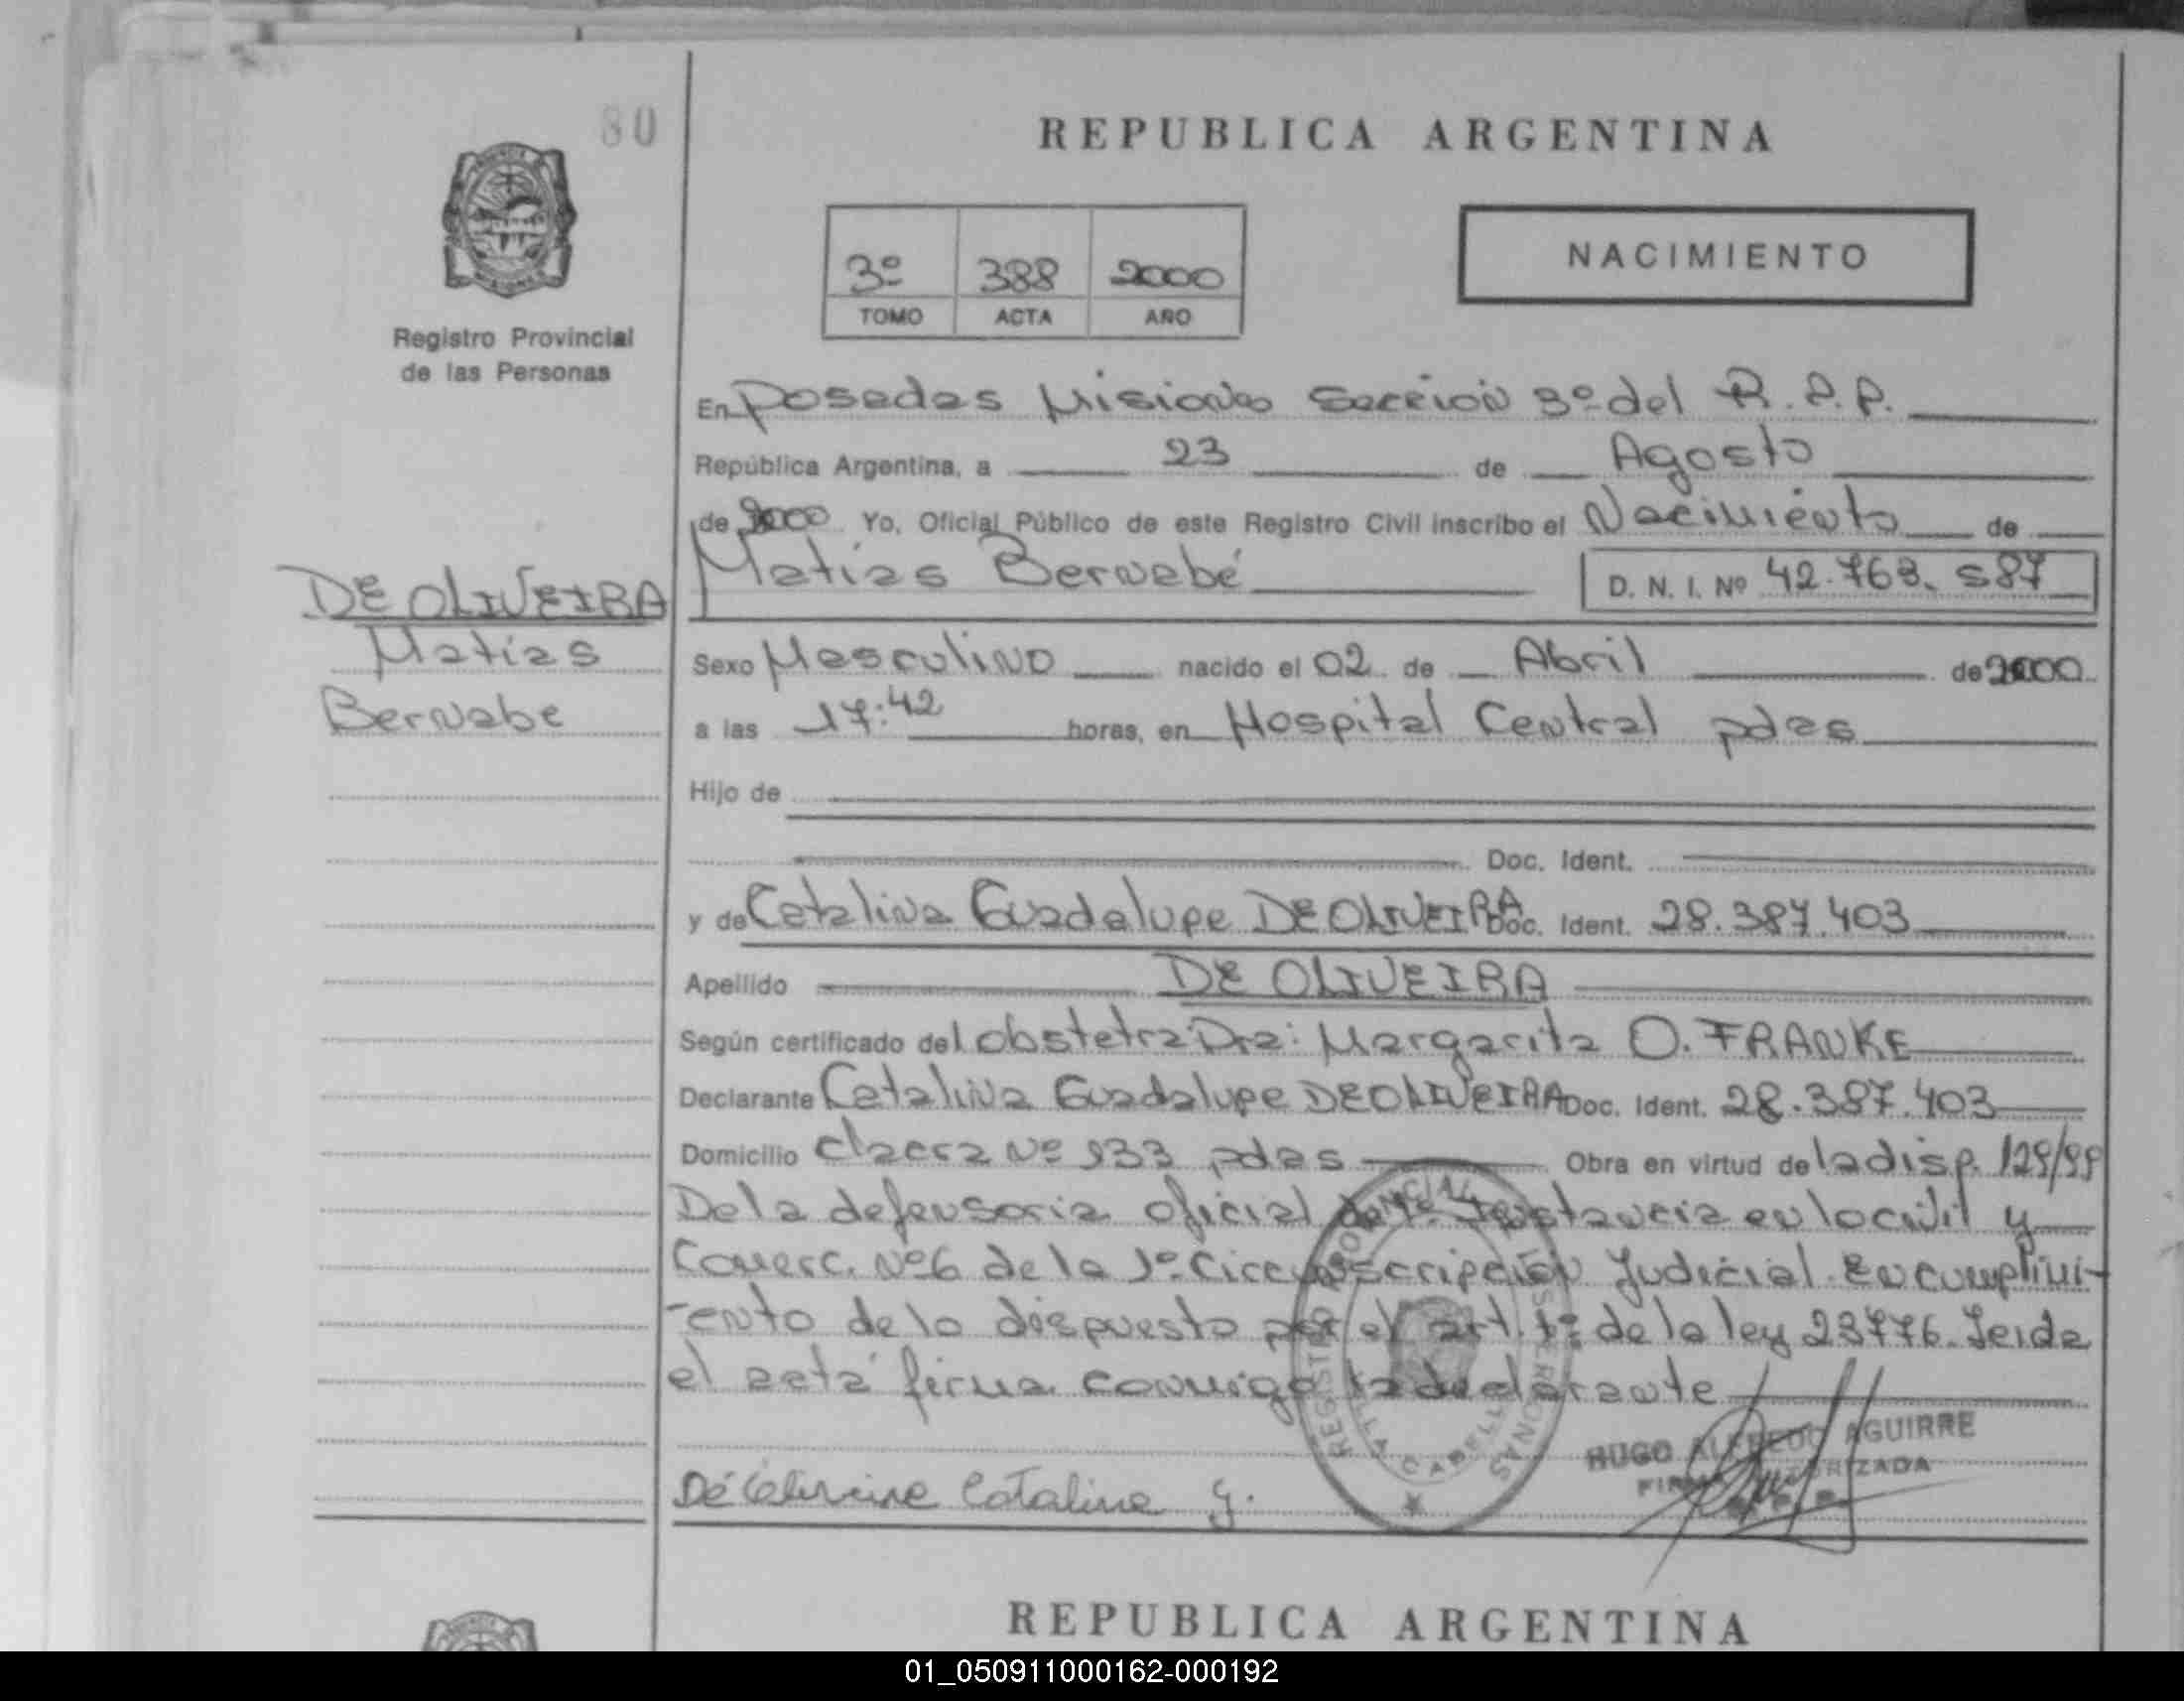 80
REPUBLICA ARGENTINA
3º 388 2000
TOMO ACTA AÑO
NACIMIENTO
Registro Provincial
de las Personas
En Posadas Misiones Sección 3º del R.P.P.
República Argentina, a 23 de Agosto
de 2000 Yo, Oficial Público de este Registro Civil inscribo el Nacimiento de
Matías Bernabé D. N. I. Nº 42.763.587
DE OLIVEIRA
Matías
Bernabe
Sexo Masculino nacido el 02 de Abril de 2000
a las 17:42 horas, en Hospital Central pdas
Hijo de
Doc. Ident.
y de Catalina Guadalupe DE OLIVEIRA Doc. Ident. 28.387.403
Apellido DE OLIVEIRA
Según certificado del obstetra Dra: Margarita O. FRANKE
Declarante Catalina Guadalupe DE OLIVEIRA Doc. Ident. 28.387.403
Domicilio Nº 933 pdas Obra en virtud de la disp. 129/99
De la defensoria oficial de 1º Instancia en lo civil y
Comerc. Nº6 de la 1º Circunscripción Judicial. En cumplimi-
-ento de lo dispuesto por el art. 1º de la ley 23776. Leida
el acta firma conmigo la declarante
REGISTRO PROVINCIAL PERSONAS
VILLA CABELLO
HUGO ALFREDO AGUIRRE
FIRMA AUTORIZADA
De Oliveira Catalina G.
REPUBLICA ARGENTINA
01_050911000162-000192